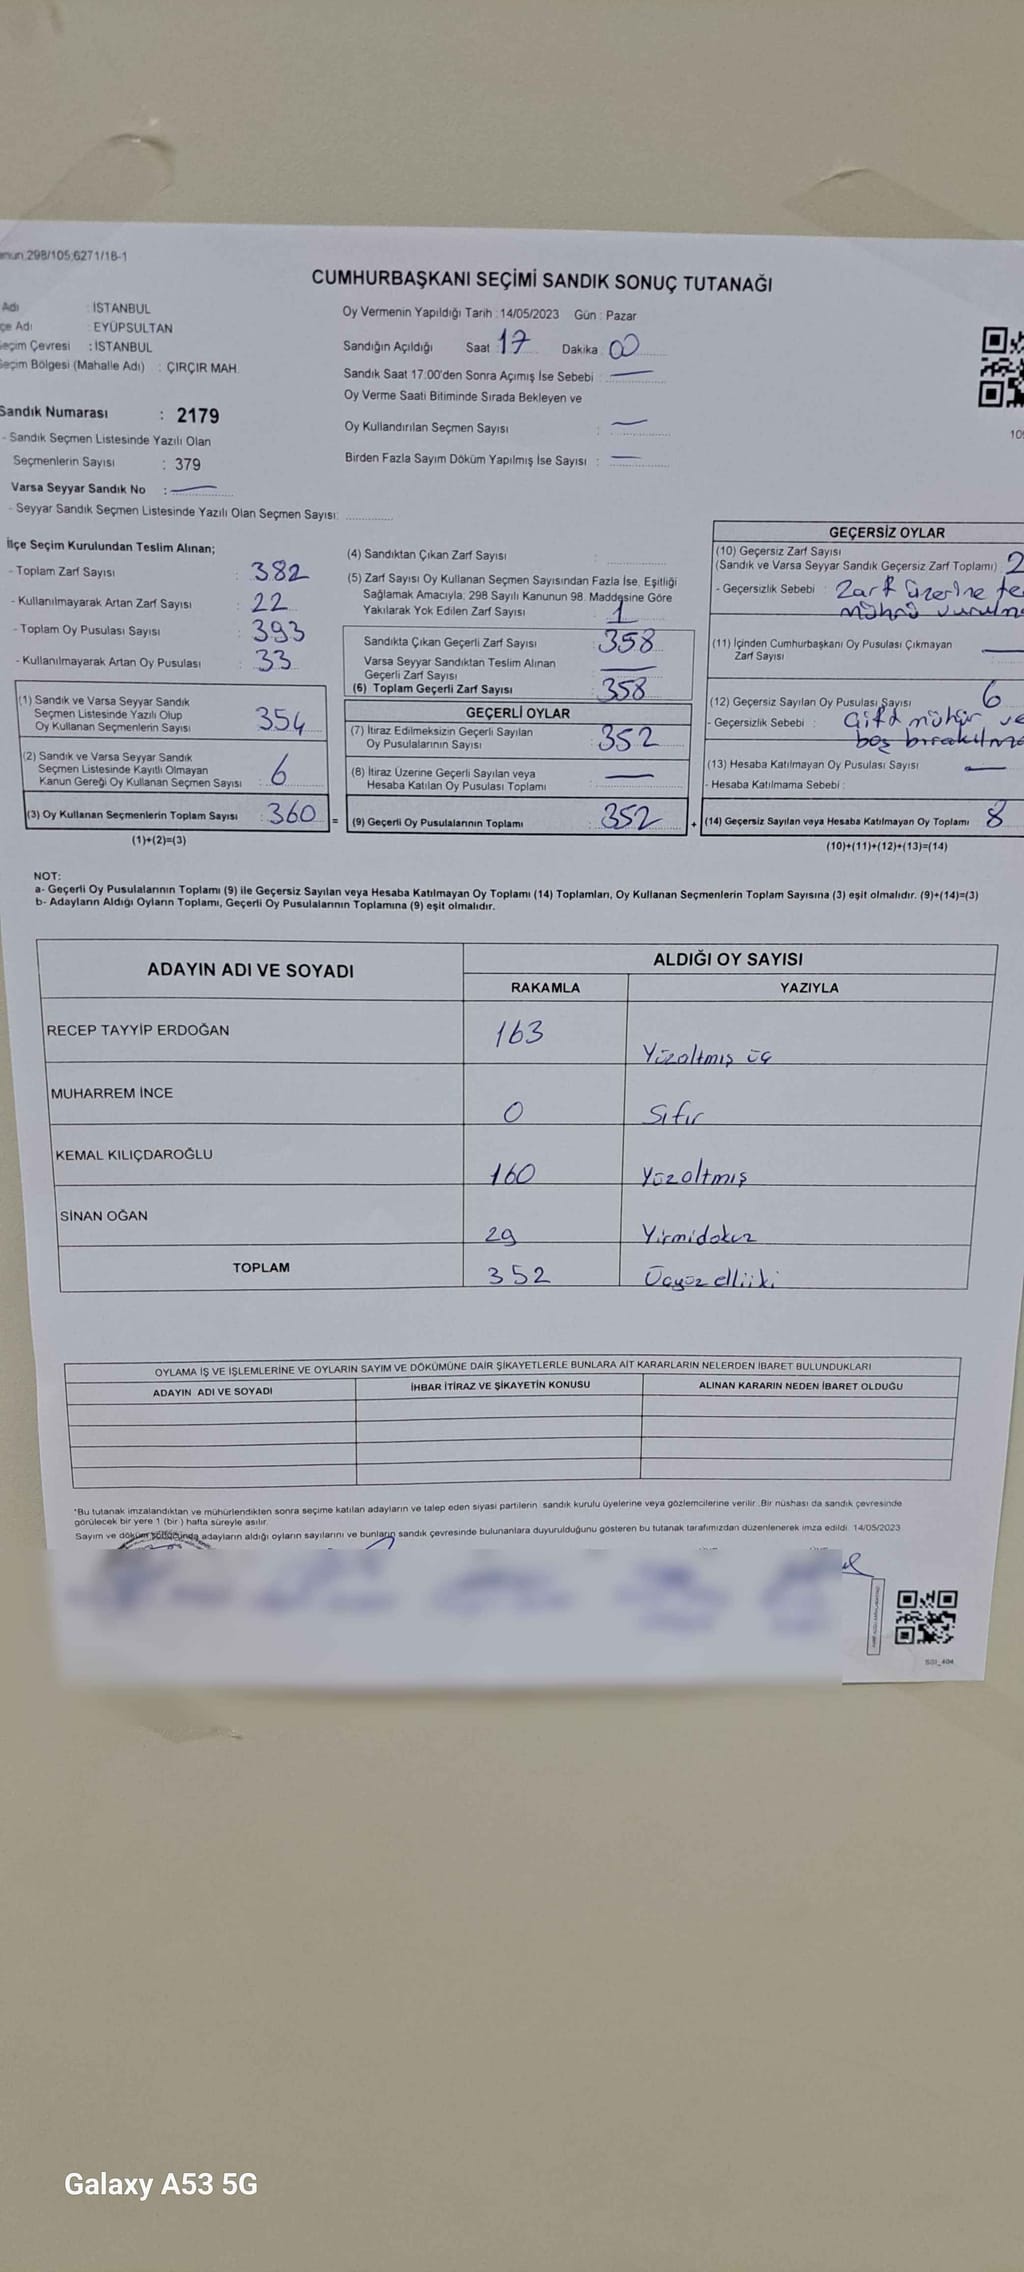 298/105,6271/18-1
CUMHURBAŞKANI SEÇİMİ SANDIK SONUÇ TUTANAĞI
Adı : İSTANBUL
Adı : EYÜPSULTAN
Seçim Çevresi : İSTANBUL
Seçim Bölgesi (Mahalle Adı) : ÇIRÇIR MAH.
Sandık Numarası : 2179
- Sandık Seçmen Listesinde Yazılı Olan
Seçmenlerin Sayısı : 379
Varsa Seyyar Sandık No : —
- Seyyar Sandık Seçmen Listesinde Yazılı Olan Seçmen Sayısı:
Oy Vermenin Yapıldığı Tarih : 14/05/2023 Gün : Pazar
Sandığın Açıldığı Saat 17 Dakika 00
Sandık Saat 17.00'den Sonra Açımış İse Sebebi : —
Oy Verme Saati Bitiminde Sırada Bekleyen ve
Oy Kullandırılan Seçmen Sayısı : —
Birden Fazla Sayım Döküm Yapılmış İse Sayısı : —
İlçe Seçim Kurulundan Teslim Alınan;
- Toplam Zarf Sayısı : 382
- Kullanılmayarak Artan Zarf Sayısı : 22
- Toplam Oy Pusulası Sayısı : 393
- Kullanılmayarak Artan Oy Pusulası : 33
(1) Sandık ve Varsa Seyyar Sandık
Seçmen Listesinde Yazılı Olup
Oy Kullanan Seçmenlerin Sayısı : 354
(2) Sandık ve Varsa Seyyar Sandık
Seçmen Listesinde Kayıtlı Olmayan
Kanun Gereği Oy Kullanan Seçmen Sayısı : 6
(3) Oy Kullanan Seçmenlerin Toplam Sayısı : 360 =
(1)+(2)=(3)
(4) Sandıktan Çıkan Zarf Sayısı :
(5) Zarf Sayısı Oy Kullanan Seçmen Sayısından Fazla İse, Eşitliği
Sağlamak Amacıyla; 298 Sayılı Kanunun 98. Maddesine Göre
Yakılarak Yok Edilen Zarf Sayısı : 1
Sandıkta Çıkan Geçerli Zarf Sayısı : 358
Varsa Seyyar Sandıktan Teslim Alınan
Geçerli Zarf Sayısı : —
(6) Toplam Geçerli Zarf Sayısı : 358
GEÇERLİ OYLAR
(7) İtiraz Edilmeksizin Geçerli Sayılan
Oy Pusulalarının Sayısı : 352
(8) İtiraz Üzerine Geçerli Sayılan veya
Hesaba Katılan Oy Pusulası Toplamı : —
(9) Geçerli Oy Pusulalarının Toplamı : 352 +
GEÇERSİZ OYLAR
(10) Geçersiz Zarf Sayısı
(Sandık ve Varsa Seyyar Sandık Geçersiz Zarf Toplamı) 2
- Geçersizlik Sebebi : Zarf üzerine
mührü
(11) İçinden Cumhurbaşkanı Oy Pusulası Çıkmayan
Zarf Sayısı —
(12) Geçersiz Sayılan Oy Pusulası Sayısı 6
- Geçersizlik Sebebi : Çift mühür
boş
(13) Hesaba Katılmayan Oy Pusulası Sayısı —
- Hesaba Katılmama Sebebi :
(14) Geçersiz Sayılan veya Hesaba Katılmayan Oy Toplamı 8
(10)+(11)+(12)+(13)=(14)
NOT:
a- Geçerli Oy Pusulalarının Toplamı (9) ile Geçersiz Sayılan veya Hesaba Katılmayan Oy Toplamı (14) Toplamları, Oy Kullanan Seçmenlerin Toplam Sayısına (3) eşit olmalıdır. (9)+(14)=(3)
b- Adayların Aldığı Oyların Toplamı, Geçerli Oy Pusulalarının Toplamına (9) eşit olmalıdır.
ADAYIN ADI VE SOYADI
ALDIĞI OY SAYISI
RAKAMLA YAZIYLA
RECEP TAYYİP ERDOĞAN 163 Yüzaltmış üç
MUHARREM İNCE 0 Sıfır
KEMAL KILIÇDAROĞLU 160 Yüzaltmış
SİNAN OĞAN 29 Yirmidokuz
TOPLAM 352 Üçyüz elliiki
OYLAMA İŞ VE İŞLEMLERİNE VE OYLARIN SAYIM VE DÖKÜMÜNE DAİR ŞİKAYETLERLE BUNLARA AİT KARARLARIN NELERDEN İBARET BULUNDUKLARI
ADAYIN ADI VE SOYADI İHBAR İTİRAZ VE ŞİKAYETİN KONUSU ALINAN KARARIN NEDEN İBARET OLDUĞU
*Bu tutanak imzalandıktan ve mühürlendikten sonra seçime katılan adayların ve talep eden siyasi partilerin sandık kurulu üyelerine veya gözlemcilerine verilir. Bir nüshası da sandık çevresinde
görülecek bir yere 1 (bir) hafta süreyle asılır.
Sayım ve döküm sonucunda adayların aldığı oyların sayılarını ve bunların sandık çevresinde bulunanlara duyurulduğunu gösteren bu tutanak tarafımızdan düzenlenerek imza edildi. 14/05/2023
Galaxy A53 5G